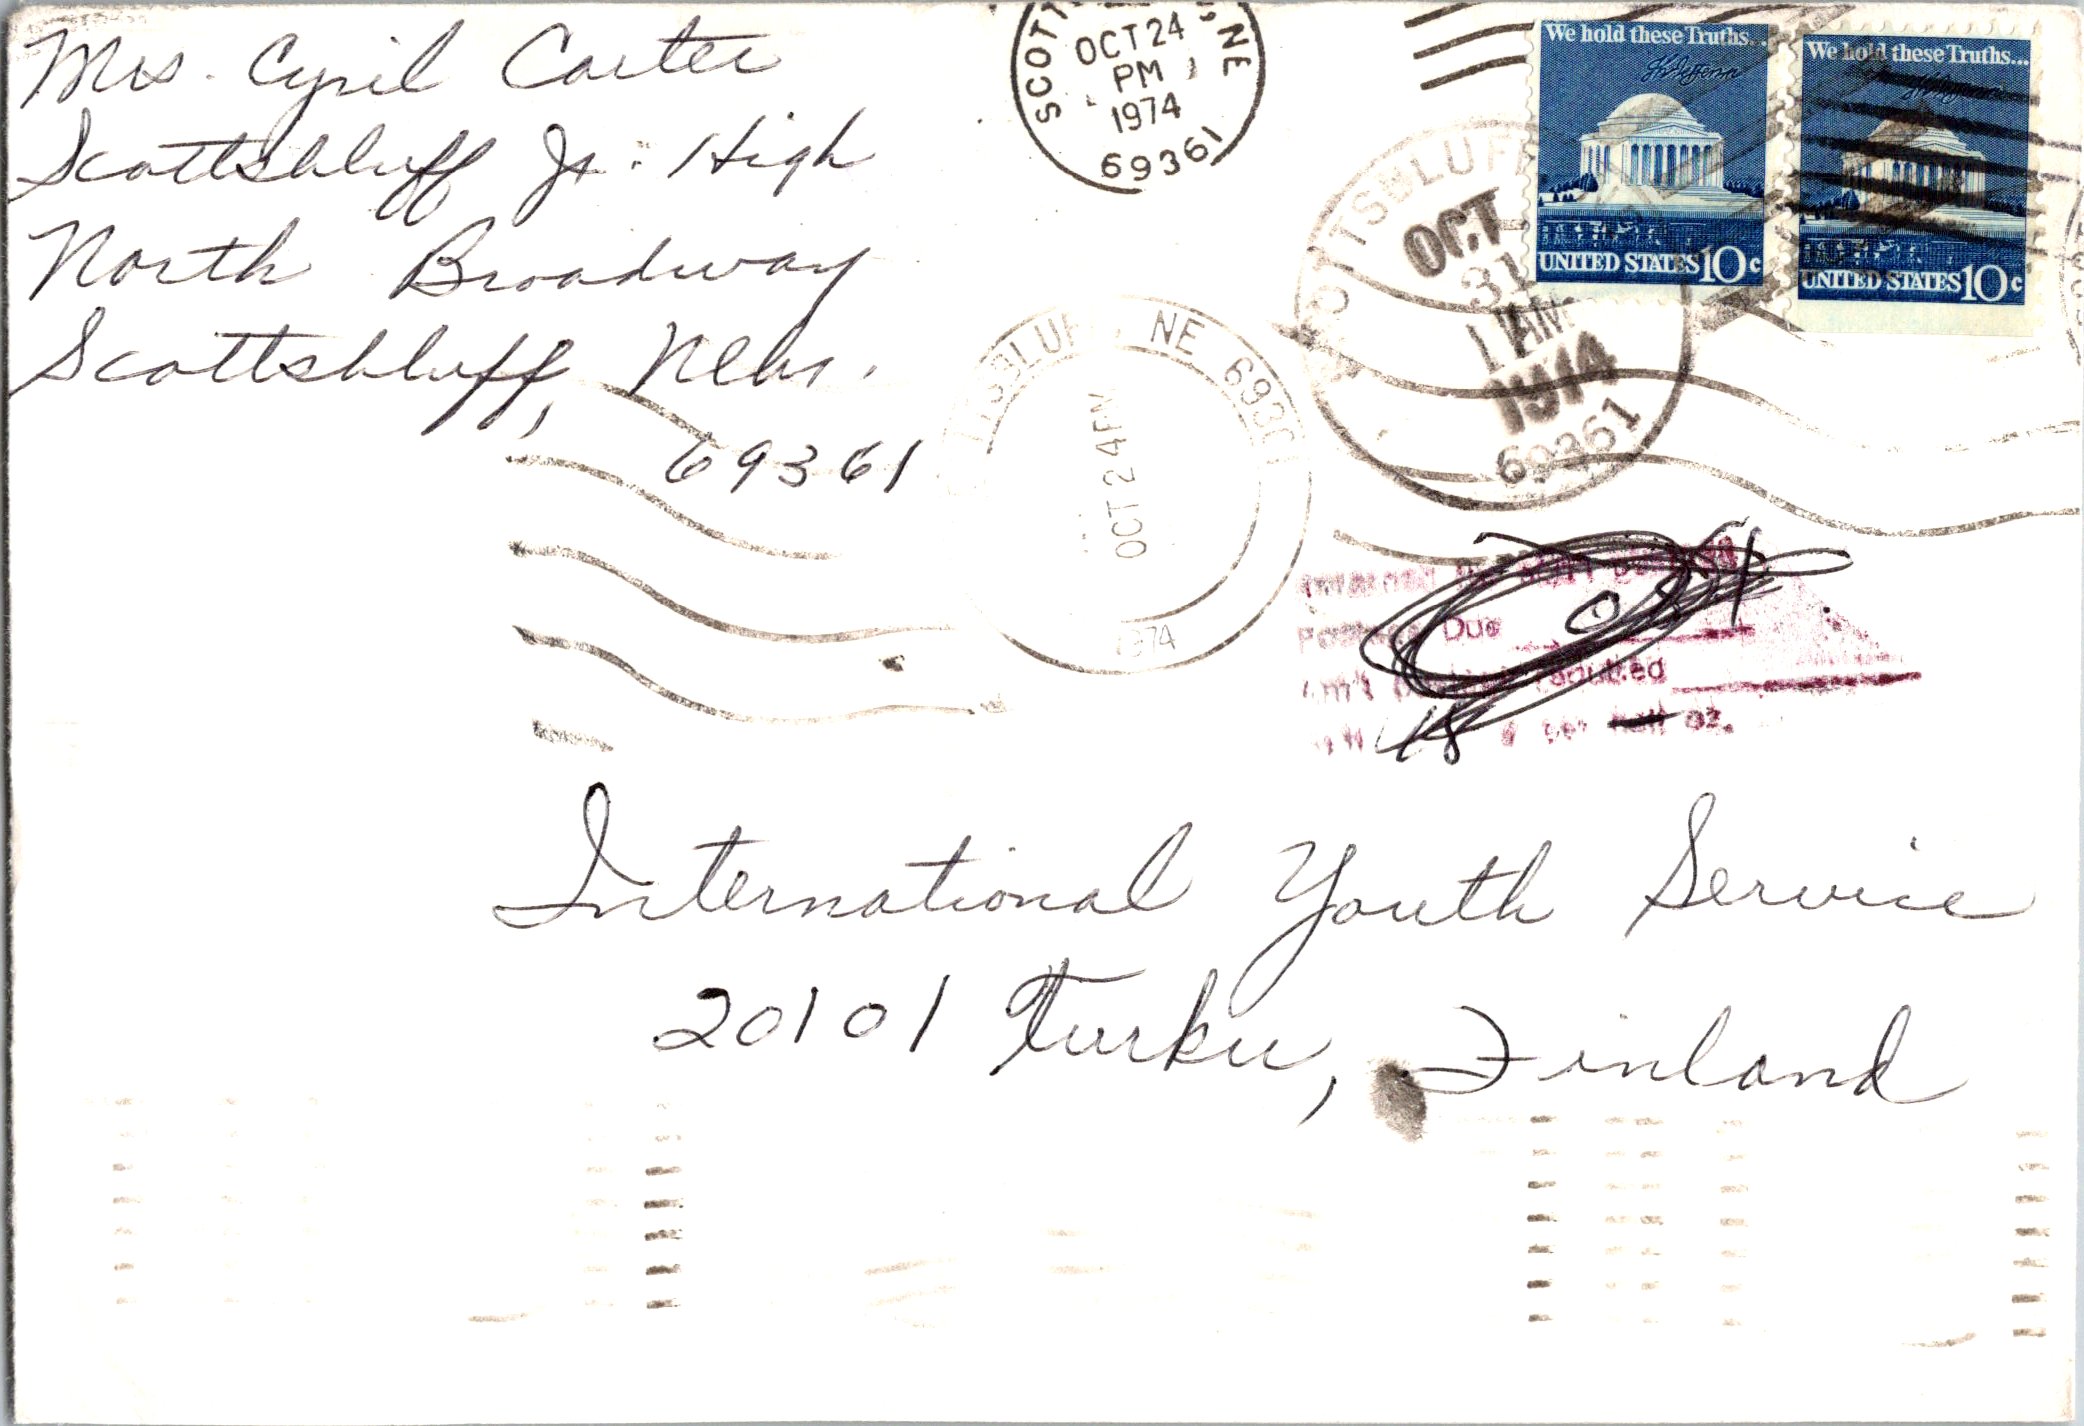 Mrs. Cyril Carter
Scottsbluff Jr. High
North Broadway
Scottsbluff, Nebr.
69361
OCT 24
PM
1974
69361
NE
We hold these Truths...
UNITED STATES 10c
We hold these Truths...
UNITED STATES 10c
OCT
31
1 AM
1974
69361
NE
OCT 24 PM
1974
Postage Due
required
18
oz.
International Youth Service
20101 Turku, Finland